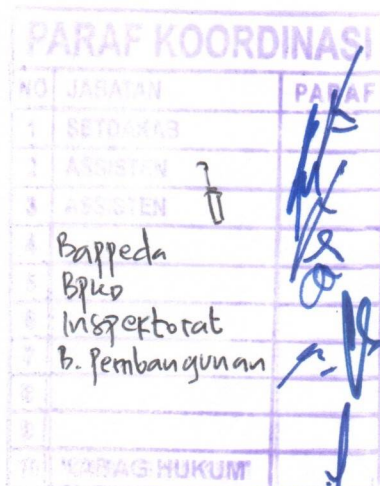 PARAF KOORDINASI
NO JABATAN PARAF
1 SETDAKAB
2 ASSISTEN
3 ASSISTEN
4 Bappeda
5 BPKD
6 Inspektorat
7 B. Pembangunan
8
9
10 KABAG HUKUM